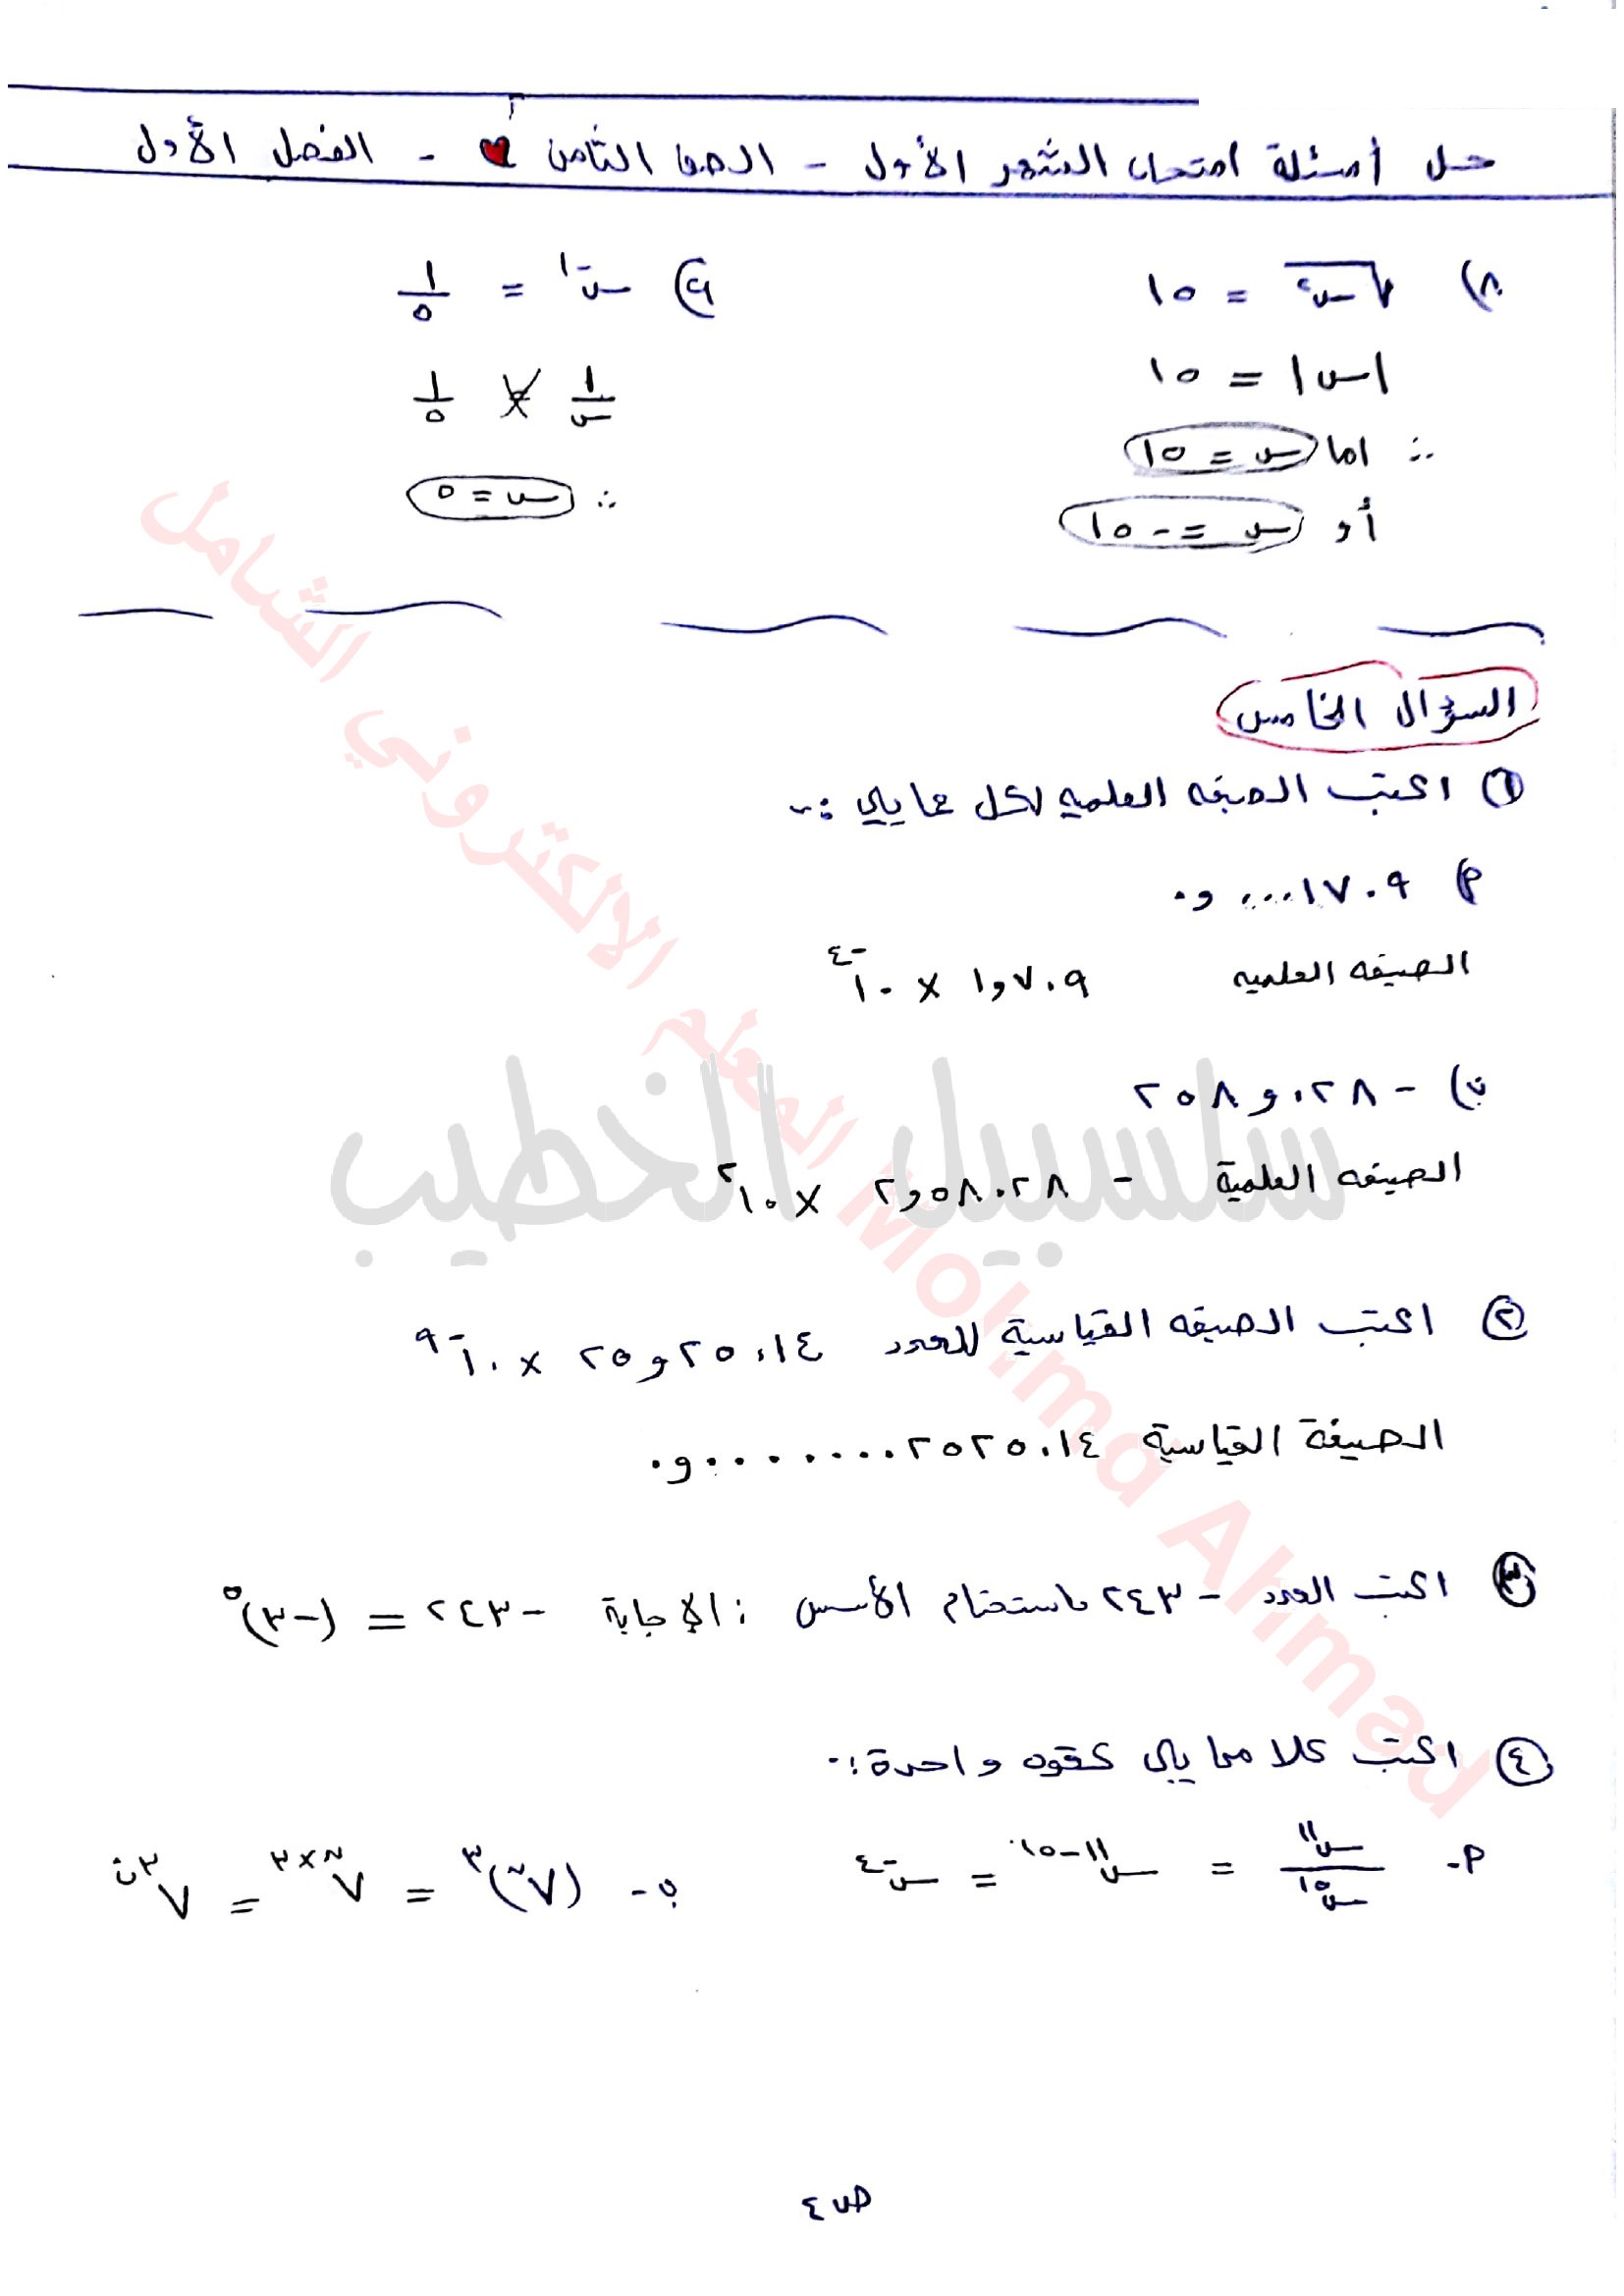 حل أسئلة امتحان الشهر الأول - الصف الثامن - الفصل الأول
٨) √س٢ = ١٥
|س| = ١٥
∴ اما س = ١٥
أو س = -١٥
٩) س-١ = ١/٥
١/س × ١/٥
∴ س = ٥
السؤال الخامس
١ اكتب الصيغه العلميه لكل مما يلي :-
٠,٠٠٠١٧٠٩ (أ
الصيغه العلميه ١,٧٠٩ × ١٠-٤
ب) - ٢٥٨,٠٢٨
الصيغه العلمية - ٢,٥٨٠٢٨ × ١٠٢
٢ اكتب الصيغه القياسية للعدد ٢٥,٢٥٠١٤ × ١٠-٩
الصيغة القياسية ٠,٠٠٠٠٠٠٠٢٥٢٥٠١٤
٣ اكتب العدد -٢٤٣ باستخدام الأسس : الإجابة -٢٤٣ = (-٣)٥
٤ اكتب كلا مما يلي كقوه واحدة :-
أ- س١١/س١٥ = س١١-١٥ = س-٤
ب- (٧ن)٣ = ٧ن×٣ = ٧٣ن
ص٤
سلسبيل الخطيب
المعلم الالكتروني الشامل
Mohmd Ahmad